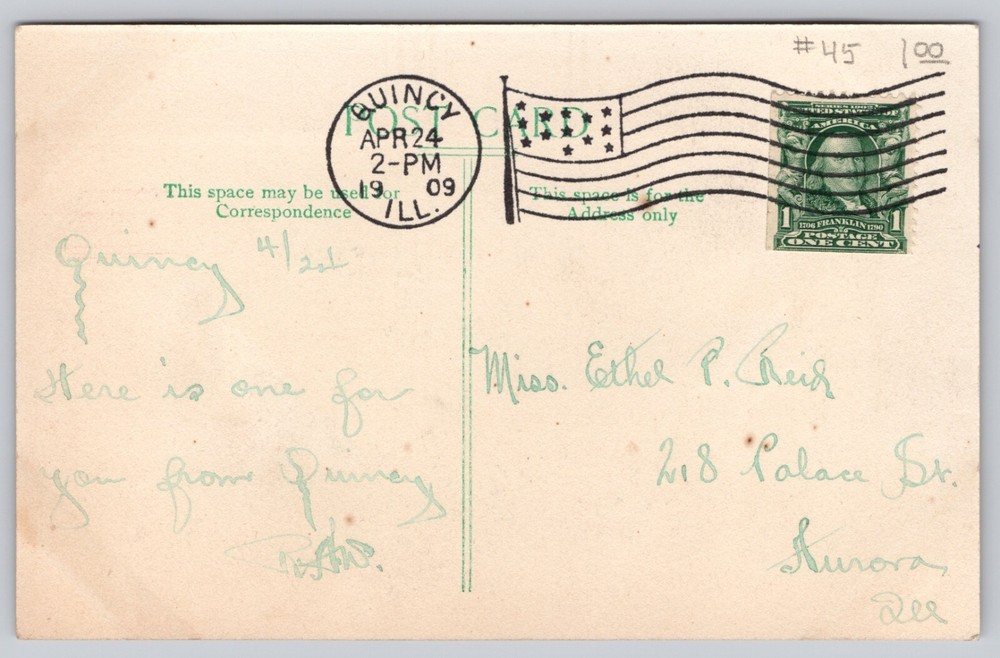 #45 1 00
POST CARD
QUINCY
APR 24
2-PM
19 09
ILL.
SERIES 1902
UNITED STATES OF
AMERICA
1 1
1706 FRANKLIN 1790
POSTAGE
ONE CENT
This space may be used for
Correspondence
This space is for the
Address only
Quincy 4/
Here is one for
you from Quincy
Miss. Ethel P. Reid
218 Palace St.
Aurora
Ill